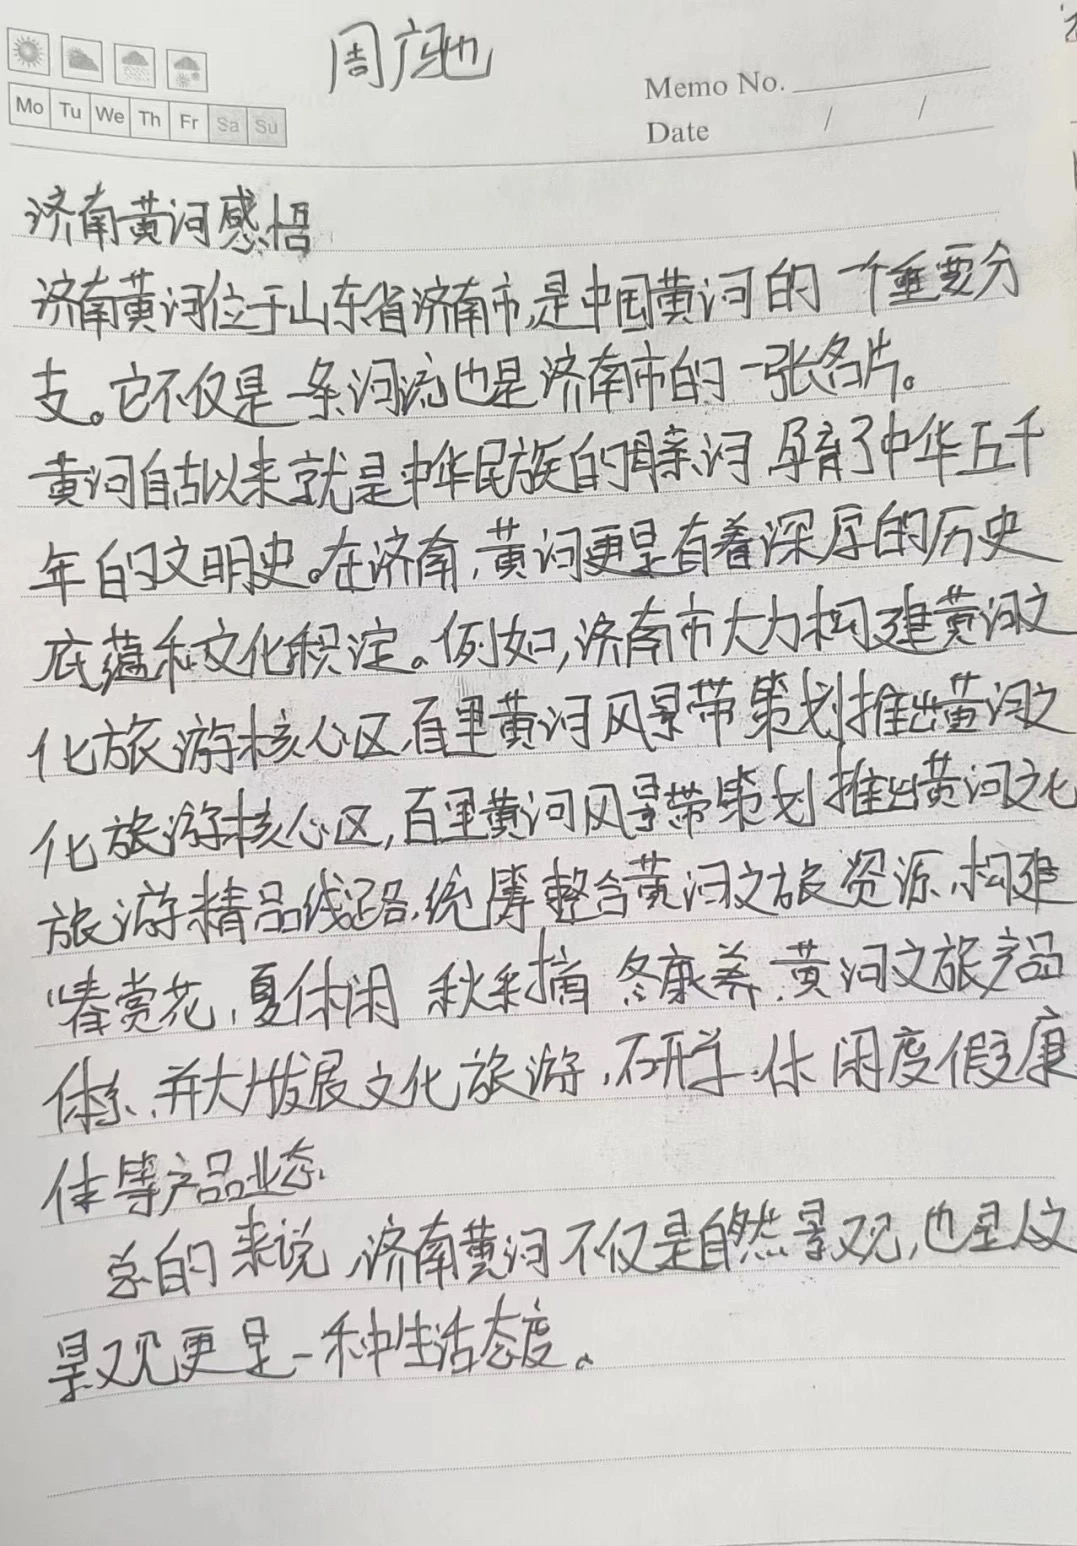 周广驰
Memo No.
Mo Tu We Th Fr Sa Su
Date / /
济南黄河感悟
济南黄河位于山东省济南市,是中国黄河的一个重要分
支。它不仅是一条河流也是济南市的一张名片。
黄河自古以来就是中华民族的母亲河 孕育了中华五千
年的文明史。在济南,黄河更是有着深厚的历史
底蕴和文化积淀。例如,济南市大力构建黄河文
化旅游核心区,百里黄河风景带策划推出黄河文
化旅游核心区,百里黄河风景带策划推出黄河文化
旅游精品线路,统筹整合黄河文旅资源,构建
“春赏花,夏休闲 秋采摘 冬康养,黄河文旅产品
体系,并大力发展文化旅游,研学,休闲度假康
体等产品业态,
总的来说,济南黄河不仅是自然景观,也是人文
景观更是一种生活态度。